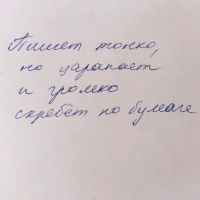 Пишет тонко,
но царапает
и громко
скребёт по бумаге